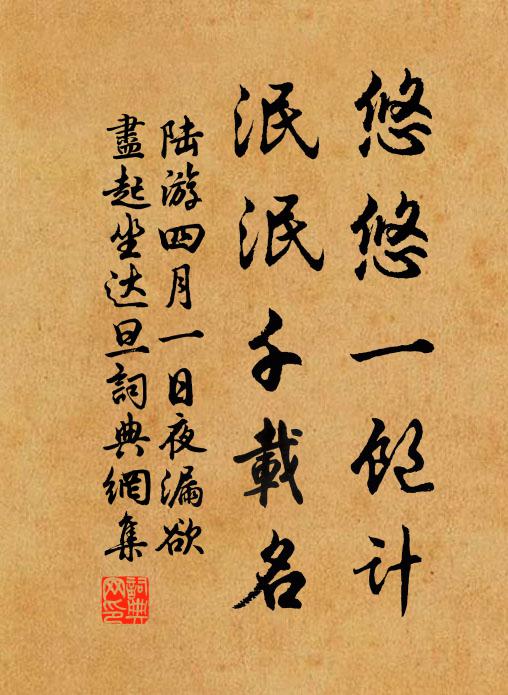 悠悠一饱计
泯泯千載名
陆游四月一日夜漏欲
盡起坐达旦詞典網集
詞典网印